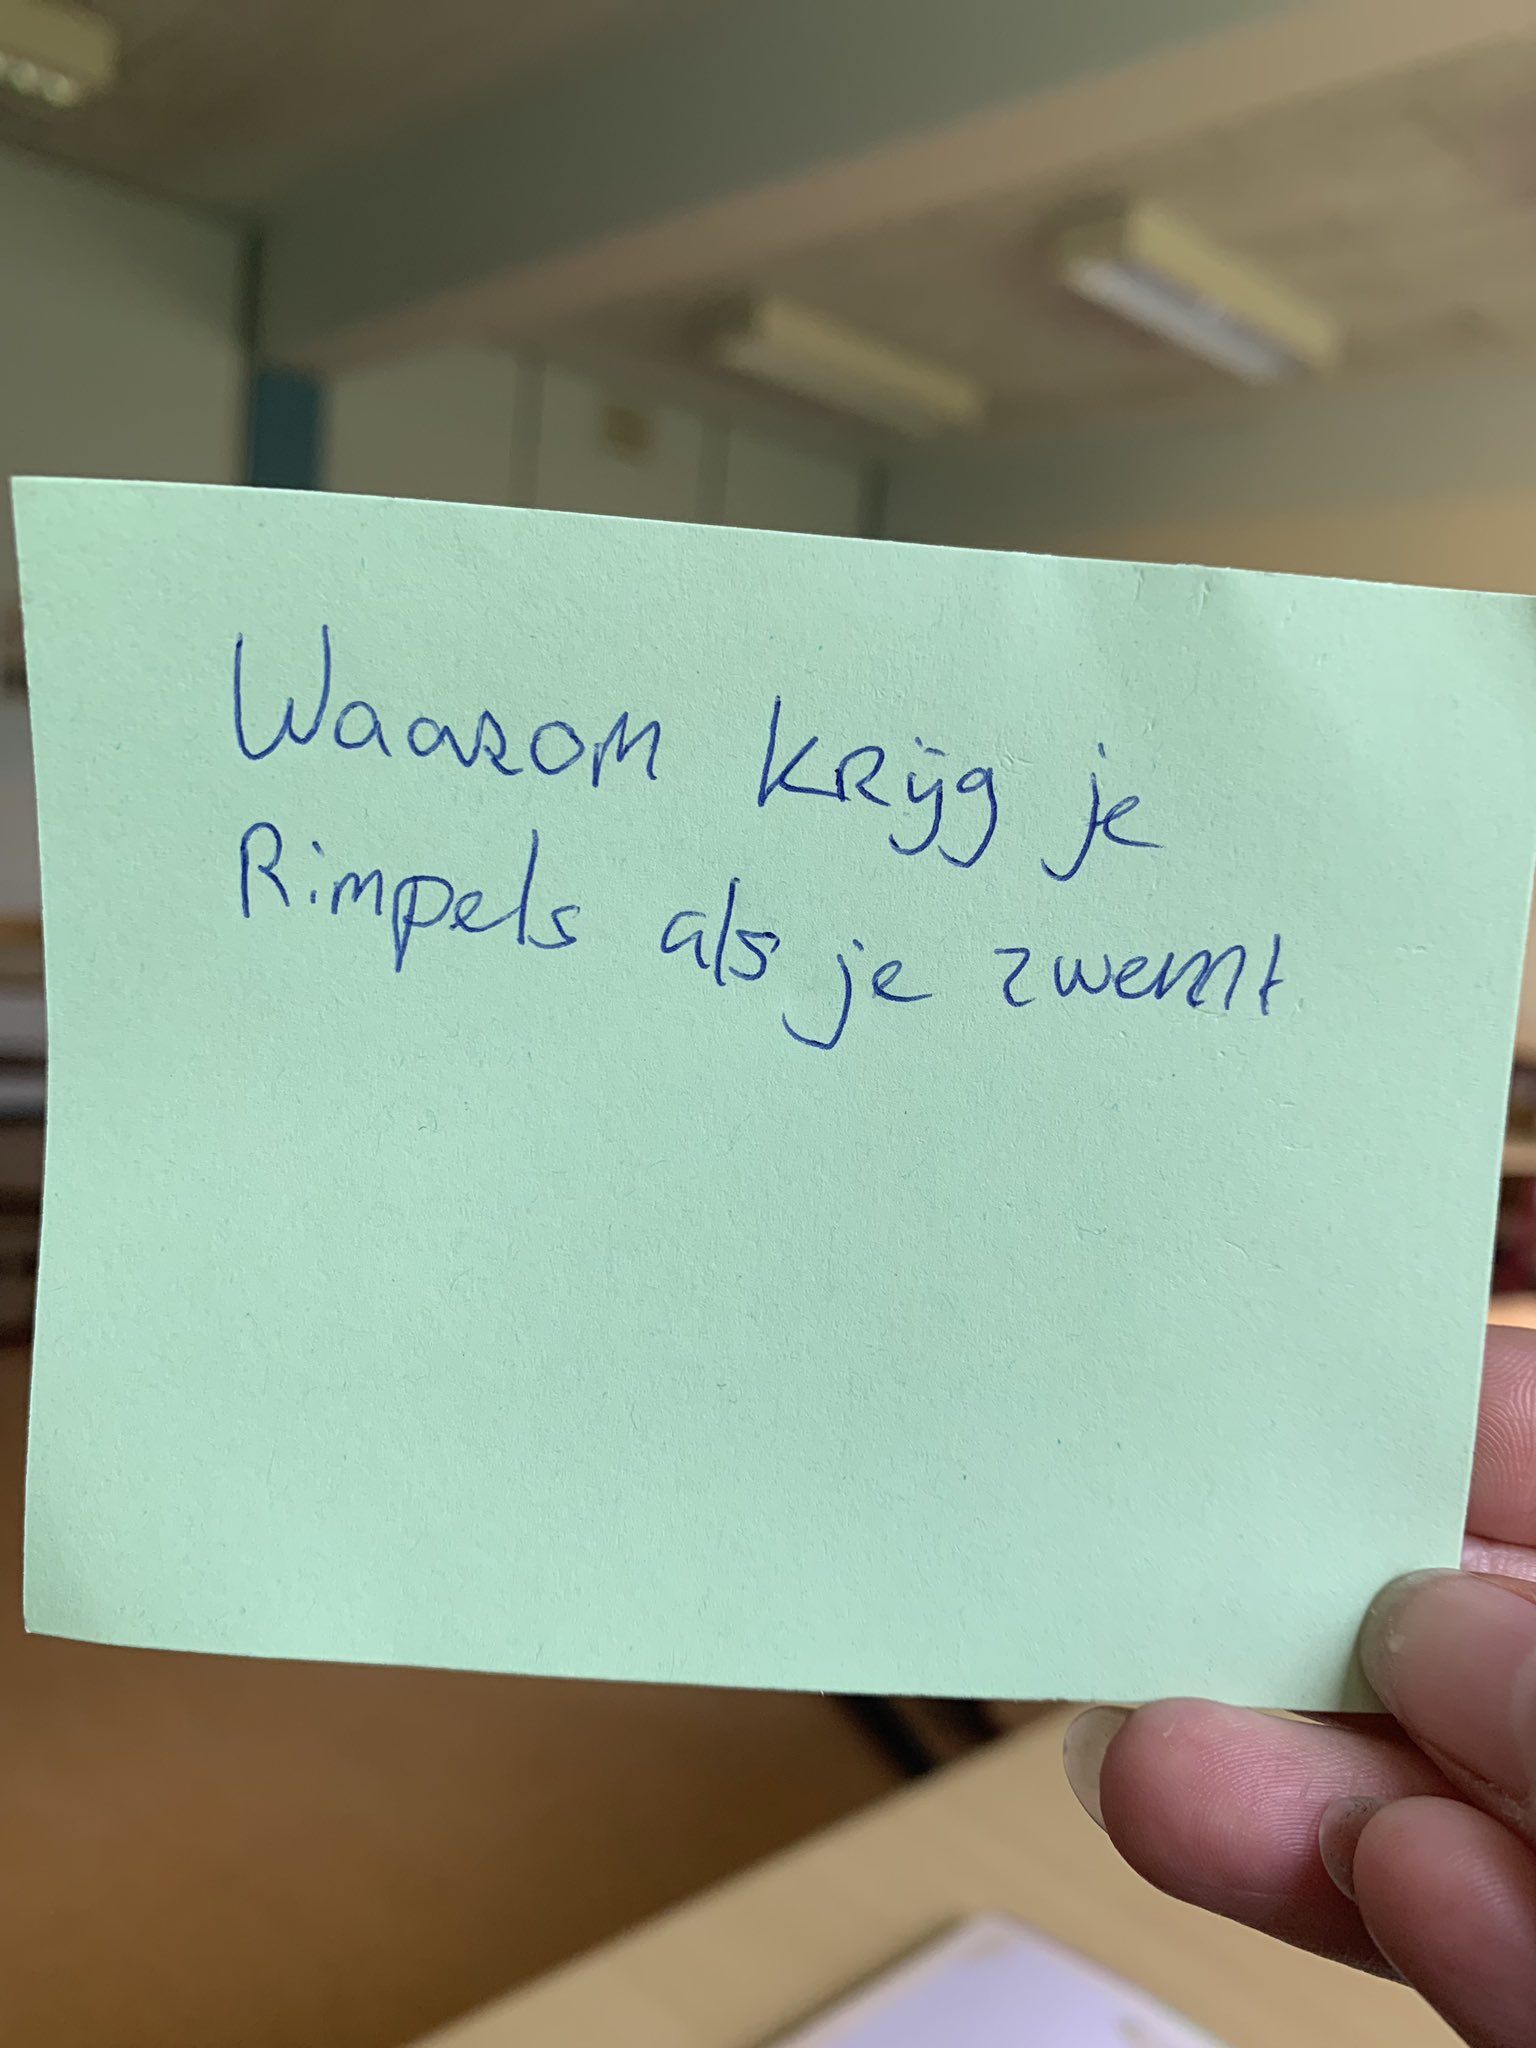 Waarom krijg je
Rimpels als je zwemt